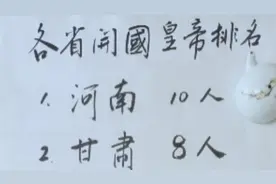 各省開國皇帝排名
1. 河南 10人
2. 甘肅 8人